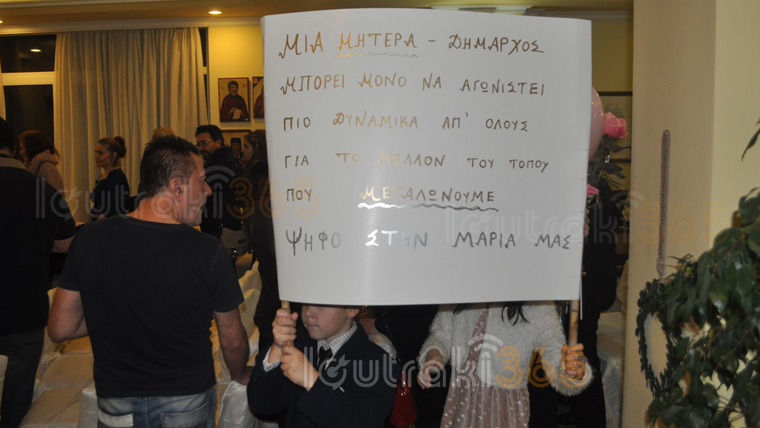 ΜΙΑ ΜΗΤΕΡΑ - ΔΗΜΑΡΧΟΣ
ΜΠΟΡΕΙ ΜΟΝΟ ΝΑ ΑΓΩΝΙΣΤΕΙ
ΠΙΟ ΔΥΝΑΜΙΚΑ ΑΠ' ΟΛΟΥΣ
ΓΙΑ ΤΟ ΜΕΛΛΟΝ ΤΟΥ ΤΟΠΟΥ
ΠΟΥ ΜΕΓΑΛΩΝΟΥΜΕ
ΨΗΦΟ ΣΤΗΝ ΜΑΡΙΑ ΜΑΣ
loutraki365
loutraki365
loutraki365
loutraki365